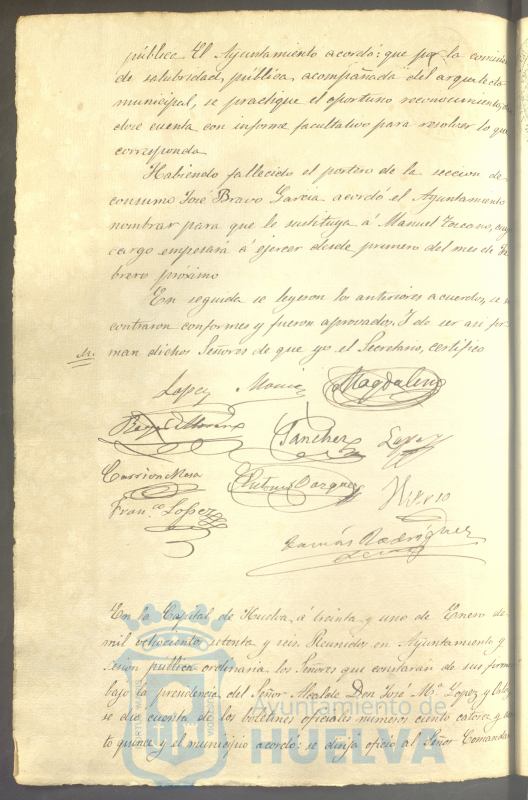 pública. El Ayuntamiento acordó: que por la comision
de salubridad, pública, acompañada del arquitecto
municipal, se practique el oportuno reconocimiento,
dose cuenta con informe facultativo para resolver lo que
corresponda
Habiendo fallecido el portero de la seccion de
consumo José Bravo Garcia acordó el Ayuntamiento
nombrar para que le sustituya á Manuel Toscano, cuyo
cargo empesará á ejercer desde primero del mes de Fe
brero próximo
En seguida se leyeron los anteriores acuerdos, se
contraron conformes y fueron aprovados. Y de ser asi fir
man dichos Señores de que yo el Secretario, certifico
Lopez Magdaleno
Sanchez Lopez
Carrion Mesa Rubio Vazquez
Fran.co Lopez
Tomás Rodriguez
En la Capital de Huelva, á treinta y uno de Enero de
mil ochociento setenta y seis Reunidos en Ayuntamiento y
sesion pública ordinaria, los Señores que constarán de sus firmas
bajo la presidencia del Señor Alcalde Don José M.ª Lopez y
se dió cuenta de los boletines oficiales numeros ciento catorce y
to quince y el municipio acordó: se dirija oficio al Señor Comandan
Ayuntamiento de
HUELVA